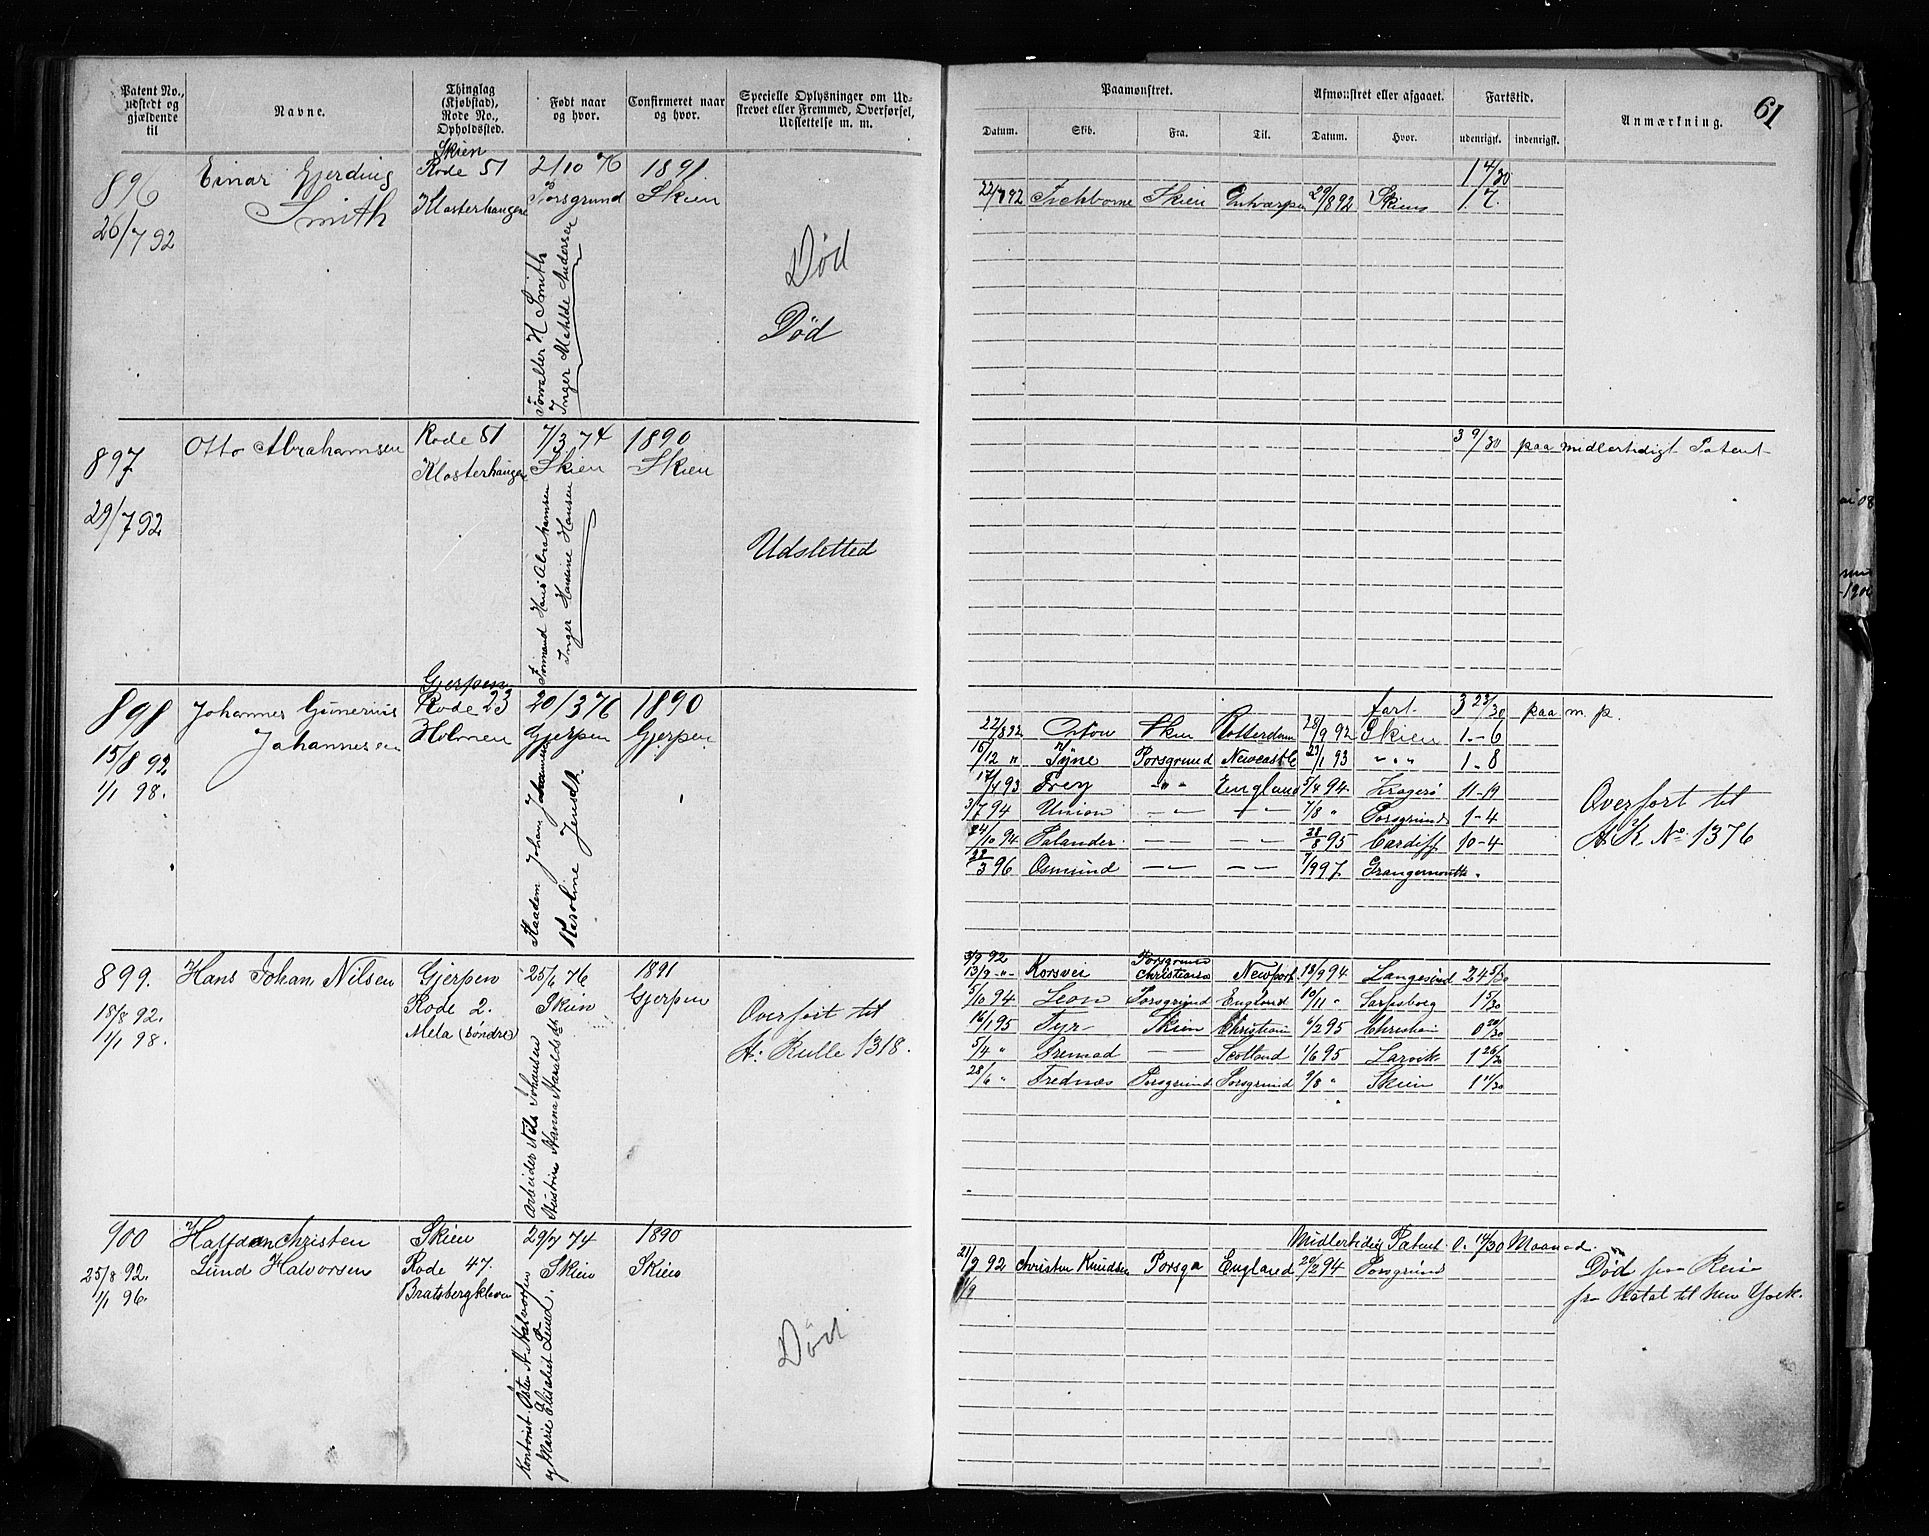 Patent No., udstedt og gjældende til
Navne.
Thinglag (Kjøbstad), Rode No., Opholdssted.
Født naar og hvor.
Confirmeret naar og hvor.
Specielle Oplysninger om Udskrevet eller Fremmed, Overførsel, Udslettelse m. m.
Paamønstret.
Datum. Skib. Fra. Til.
Afmønstret eller afgaaet.
Datum. Hvor.
Fartstid.
udenrigsk. indenrigsk.
Anmærkning.
61
896
26/7 92
Einar Gjerding
Smith
Skien
Rode 51
Klosterhaugene
2/10 76
Porsgrund
H Smith
Inger Mathilde Andersen
1891
Skien
Død
Død
1 4/30
22/7 92 Skien Antwerpen 29/8 92 Skien 1. 7.
897
29/7 92
Otto Abrahamsen
Rode 51
Klosterhaugen
7/3 74
Skien
Formand Hans Abrahamsen
Inger Hansine Hansen
1890
Skien
Udslettet
3 9/30 paa midlertidigt Patent
898
15/8 92.
1/1 98.
Johannes Gunerius
Johannesen
Gjerpen
Rode 23
Holmen
20/3 76
Gjerpen
Johan Johannesen
Karoline Jensdtr.
1890
Gjerpen
fart. 3 23/30 paa m. p.
22/8 92 Skien Rotterdam 28/9 92 Skien 1.-6
15/12 " Tyne Porsgrund Newcastle 23/1 93 " " " 1-8
17/4 93 Frey -"- England 5/4 94 Kragerø 11-19
3/7 94 Union — — 7/8 " Porsgrund 1-4
24/10 94 Palander — — 28/8 95 Cardiff 10-4
28/3 96 Osmund — — 7/9 97. Grangemouth
Overført til
A. R No 1376
899.
18/8 92.
1/1 98.
Hans Johan Nilsen
Gjerpen
Rode 2.
Mela (søndre)
25/6 76
Skien
Arbeider Nils Johansen
Hanna Haraldsdtr
1891
Gjerpen
Overført til
A: Rulle 1318.
3/9 92 Porsgrund
13/9 -"- Korsvei Christiania Newport 18/9 94. Langesund 24 5/30
5/10 94 Leon Porsgrund England 10/11 " Sarpsborg 1 5/30
16/1 95 Tyr Skien Christiania 6/2 95 Christiania 0 20/30
5/4 " Fremad — Scotland 1/6 95 Larvik 1 26/30
28/6 " Frednæs Porsgrund Porsgrund 9/8 " Skien 1 11/30
900
25/8 92.
1/1 96.
Halfdan Christen
Lund Halvorsen
Skien
Rode 47.
Bratsbergkleven
29/7 74
Skien
Kontorist Halvorsen
og Marie Elisabet Lund.
1890
Skien
Død
Midlertidig Patent. 0. 14/30 Maaned.
21/9 92 Christen Knudsen Porsg. England 20/2 94 Porsgrund
Død paa Reise
fra Natal til New York.